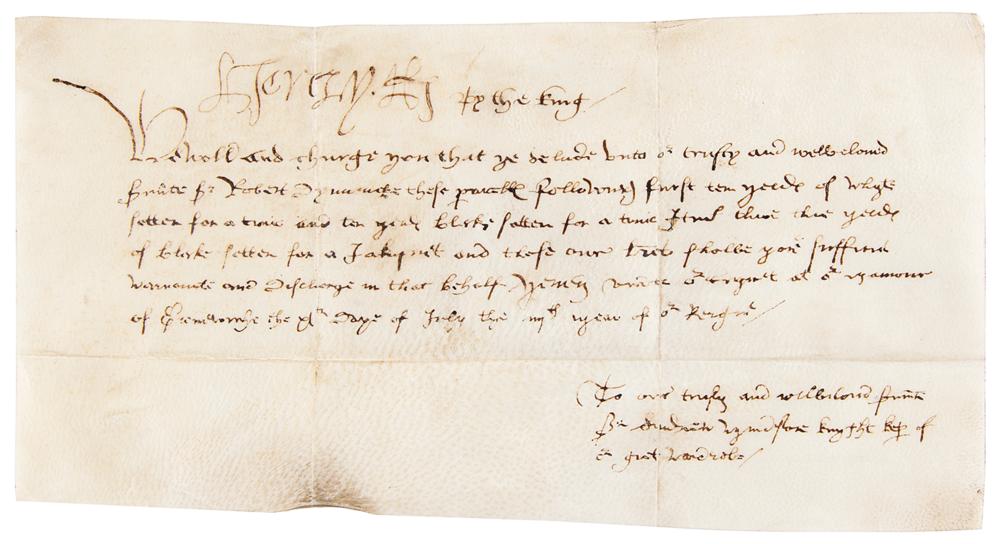 Henry R By the king
We woll and charge you that ye delyver unto or trusty and welbeloved
srvnte Sr Robert Dymmocke these parcells following furst ten yerds of whyte
satten for a and ten yerds blacke satten for a Itm thre yerds
of blacke satten for a Jaket and these our tres shalbe yor sufficient
warraunte and discharge in that behalf yeven undre or sygnet at or manour
of Grenewyche the daye of July the yere of or Reigne
To our trusty and welbeloved srvnte
Sr Andrewe Wyndsore knyght kepr of
or gret warderobe